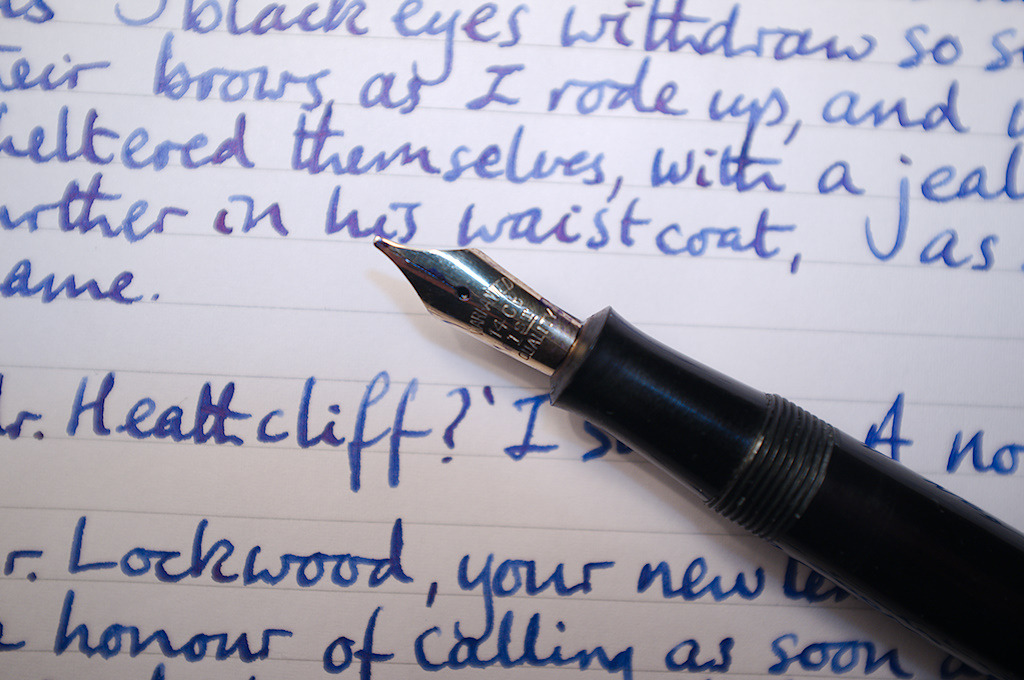 black eyes withdraw so
brows, as I rode up, and
themselves, with a
in his waistcoat, as
.
Heathcliff?' I A
Lockwood, your new
honour of calling as soon
14 CT
1ST
QUALITY